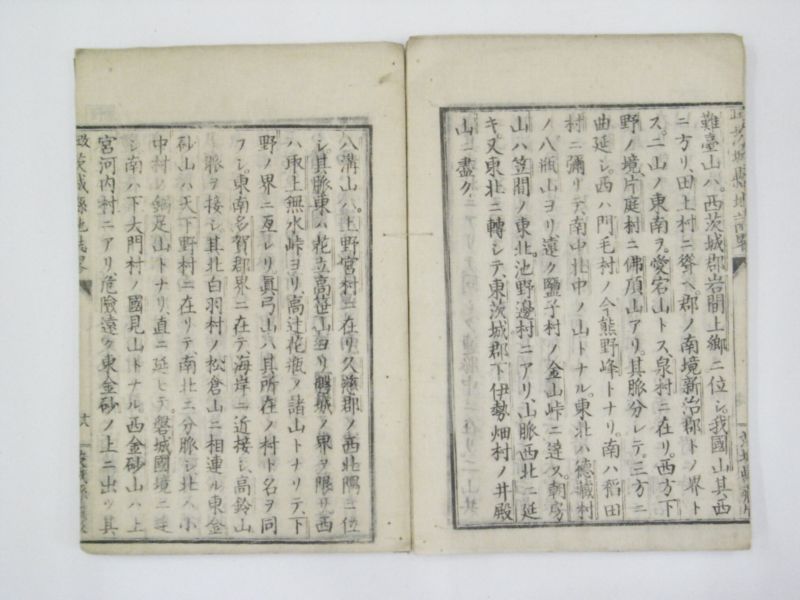 難臺山ハ。西茨城郡岩間上鄕ニ位シ。我國山其西
ニ方リ。田上村ニ聳ヘ。郡ノ南境新治郡トノ界ト
ス。二山ノ東南ヲ。愛宕山トス。泉村ニ在リ。西方下
野ノ境片庭村ニ佛頂山アリ。其脈分レテ。三方ニ
曲延シ。西ハ門毛村ノ今熊野峰トナリ。南ハ稻田
村ニ彌リテ。南中北中ノ山トナル。東北ハ德藏村
ノ八瓶山ヨリ遠ク鹽子村ノ金山峠ニ達ス。朝房
山ハ笠間ノ東北。池野邊村ニアリ。山脈西北ニ延
キ。又東北ニ轉シテ。東茨城郡下伊勢畑村ノ井殿
山ニ盡ク
八溝山ハ。上野宮村ニ在リ。久慈郡ノ西北隅ニ位
シ。其脈東ハ花立高笹山ヨリ。磐城ノ界ヲ限リ。西
ハ取上無水峠ヨリ。高辻花瓶ノ諸山トナリテ。下
野ノ界ニ亙レリ。眞弓山ハ其所在ノ村ト名ヲ同
フシ。東南多賀郡界ニ在テ。海岸ニ近接シ。高鈴山
脈ヲ接シ。其北白羽村ノ松倉山ニ相連ル。東金
砂山ハ天下野村ニ在リテ。南北ニ分脈シ。北ハ小
中村ノ鍋足山トナリ。直ニ延ヒテ。磐城國境ニ
シ。南ハ下大門村ノ國見山トナル。西金砂山ハ上
宮河内村ニアリ。危險遠ク東金砂ノ上ニ出ツ。其
茨城縣地誌略
六